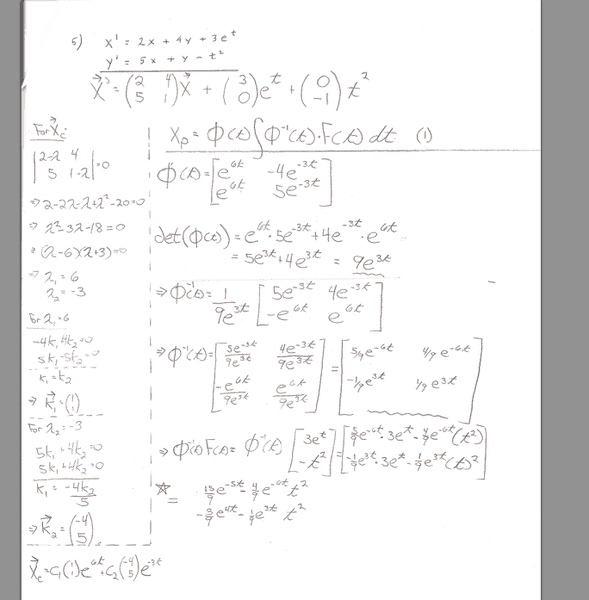 5) x' = 2x + 4y + 3e^t
y' = 5x + y - t^2
X⃗' = (2 4; 5 1)X⃗ + (3; 0)e^t + (0; -1)t^2
For X⃗c:
|2-λ 4; 5 1-λ| = 0
⇒ 2-2λ-λ+λ²-20=0
⇒ λ²-3λ-18=0
⇒ (λ-6)(λ+3)=0
⇒ λ₁ = 6
λ₂ = -3
For λ₁=6
-4k₁4k₂=0
5k₁-5k₂=0
k₁=k₂
⇒ K⃗₁=(1; 1)
For λ₂=-3
5k₁+4k₂=0
5k₁+4k₂=0
k₁ = -4k₂/5
⇒ K⃗₂=(-4; 5)
X⃗c=C₁(1; 1)e^6t+C₂(-4; 5)e^-3t
Xp = Φ(t)∫Φ⁻¹(t)·F(t) dt (1)
Φ(t)=[e^6t -4e^-3t; e^6t 5e^-3t]
det(Φ(t))=e^6t·5e^-3t+4e^-3t·e^6t
= 5e^3t+4e^3t = 9e^3t
⇒ Φ⁻¹(t)= 1/9e^3t [5e^-3t 4e^-3t; -e^6t e^6t]
⇒ Φ⁻¹(t)=[5e^-3t/9e^3t 4e^-3t/9e^3t; -e^6t/9e^3t e^6t/9e^3t] = [5/9e^-6t 4/9e^-6t; -1/9e^3t 1/9e^3t]
⇒ Φ⁻¹(t)F(t)= Φ⁻¹(t) [3e^t; -t²]=[5/9e^-6t·3e^t-4/9e^-6t(t²); -1/9e^3t·3e^t-1/9e^3t(t)²]
☆ = 15/9e^-5t-4/9e^-6t t²
-3/9e^4t-1/9e^3t t²